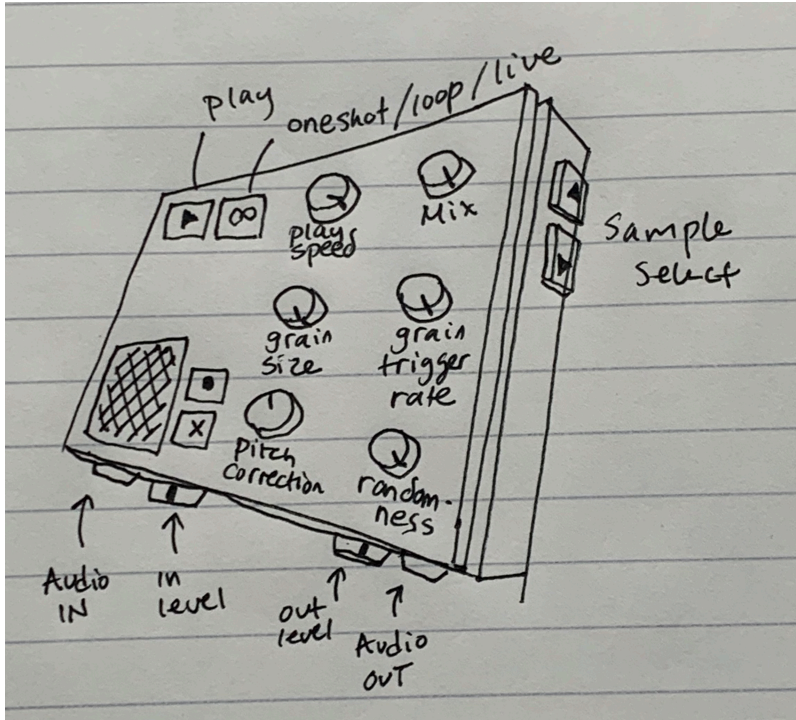 play
oneshot/loop/live
play
speed
Mix
Sample
Select
grain
size
grain
trigger
rate
Pitch
correction
random-
ness
Audio
IN
in
level
out
level
Audio
OUT